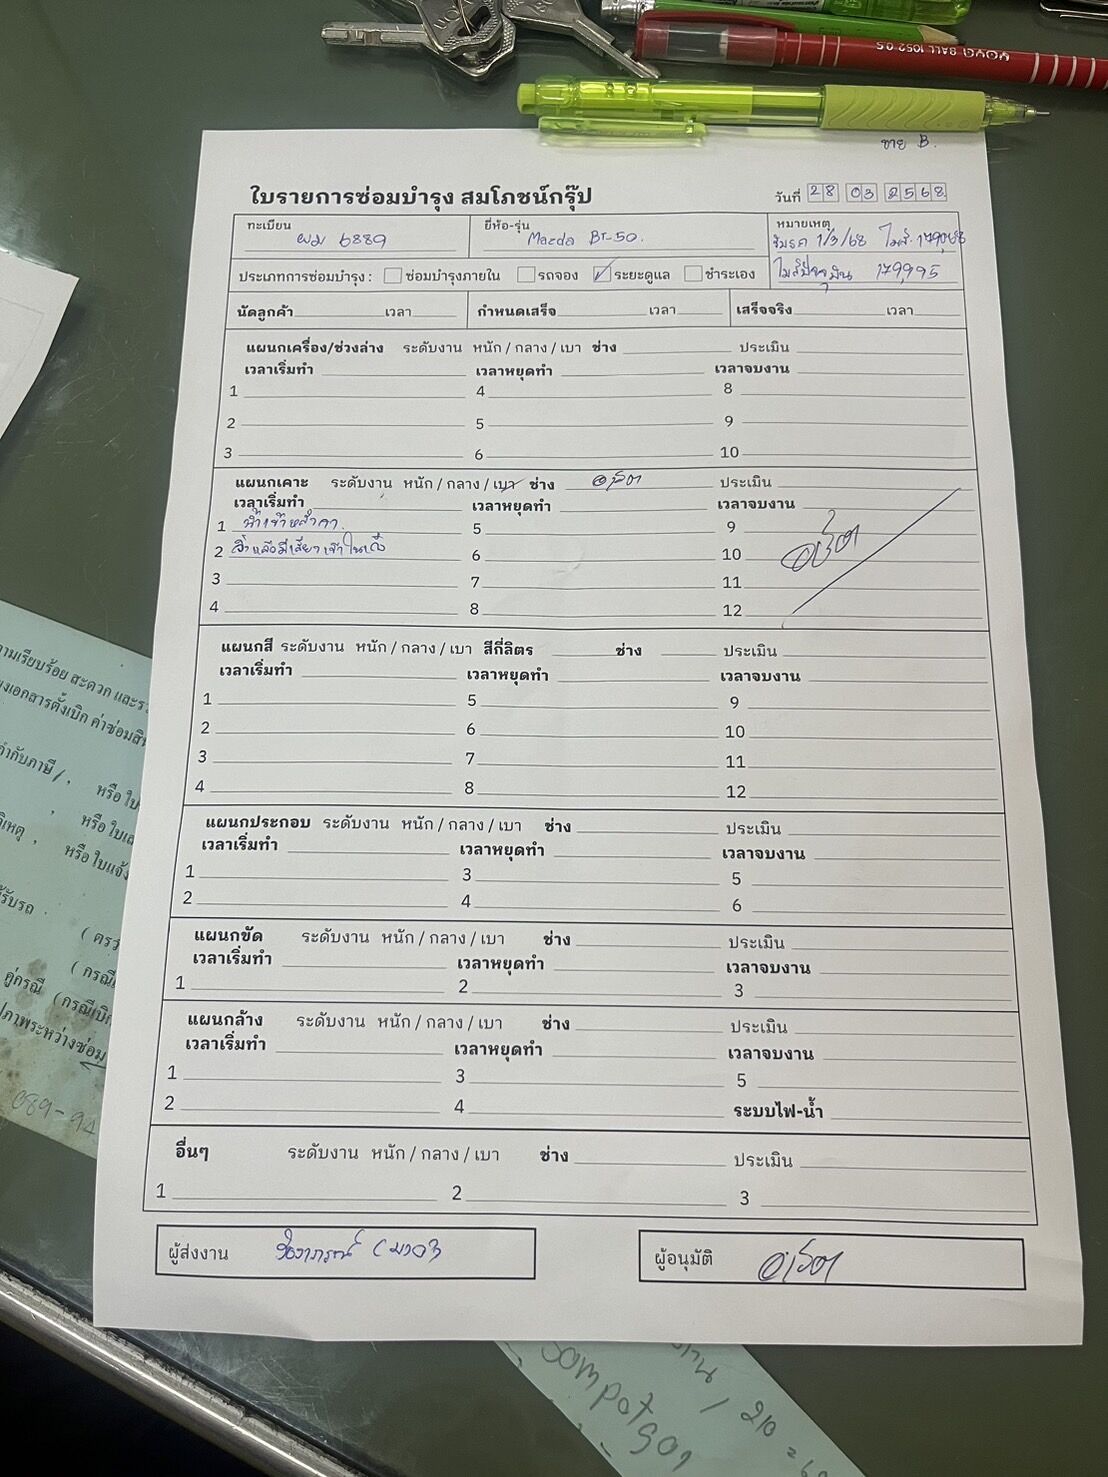 YOYA BALL 1052 0.5
ขาย B.
ใบรายการซ่อมบำรุง สมโภชน์กรุ๊ป
วันที่ 28 03 2568
ทะเบียน ผม 6889
ยี่ห้อ-รุ่น Mazda BT-50.
หมายเหตุ
รับรถ 1/3/68 ไมล์.
ไมล์ปัจจุบัน 179,995
ประเภทการซ่อมบำรุง : ซ่อมบำรุงภายใน รถจอง ✓ ระยะดูแล ชำระเอง
นัดลูกค้า เวลา กำหนดเสร็จ เวลา เสร็จจริง เวลา
แผนกเครื่อง/ช่วงล่าง ระดับงาน หนัก / กลาง / เบา ช่าง ประเมิน
เวลาเริ่มทำ เวลาหยุดทำ เวลาจบงาน
1 4 8
2 5 9
3 6 10
แผนกเคาะ ระดับงาน หนัก / กลาง / เบา ช่าง ประเมิน
เวลาเริ่มทำ เวลาหยุดทำ เวลาจบงาน
1 น้ำเข้าหลังคา. 5 9
2 6 10
3 7 11
4 8 12
แผนกสี ระดับงาน หนัก / กลาง / เบา สีกี่ลิตร ช่าง ประเมิน
เวลาเริ่มทำ เวลาหยุดทำ เวลาจบงาน
1 5 9
2 6 10
3 7 11
4 8 12
แผนกประกอบ ระดับงาน หนัก / กลาง / เบา ช่าง ประเมิน
เวลาเริ่มทำ เวลาหยุดทำ เวลาจบงาน
1 3 5
2 4 6
แผนกขัด ระดับงาน หนัก / กลาง / เบา ช่าง ประเมิน
เวลาเริ่มทำ เวลาหยุดทำ เวลาจบงาน
1 2 3
แผนกล้าง ระดับงาน หนัก / กลาง / เบา ช่าง ประเมิน
เวลาเริ่มทำ เวลาหยุดทำ เวลาจบงาน
1 3 5
2 4 ระบบไฟ-น้ำ
อื่นๆ ระดับงาน หนัก / กลาง / เบา ช่าง ประเมิน
1 2 3
ผู้ส่งงาน
ผู้อนุมัติ
ามเรียบร้อย สะดวก และ
งเอกสารตั้งเบิก ค่าซ่อมสิน
กำกับภาษี / , หรือ ใบ
, หรือ ใบ
, หรือ ใบแจ้ง
รับรถ
( ตรว
( กรณี
คู่กรณี (กรณีเบิก
ภาพระหว่างซ่อม
089-94
210 =